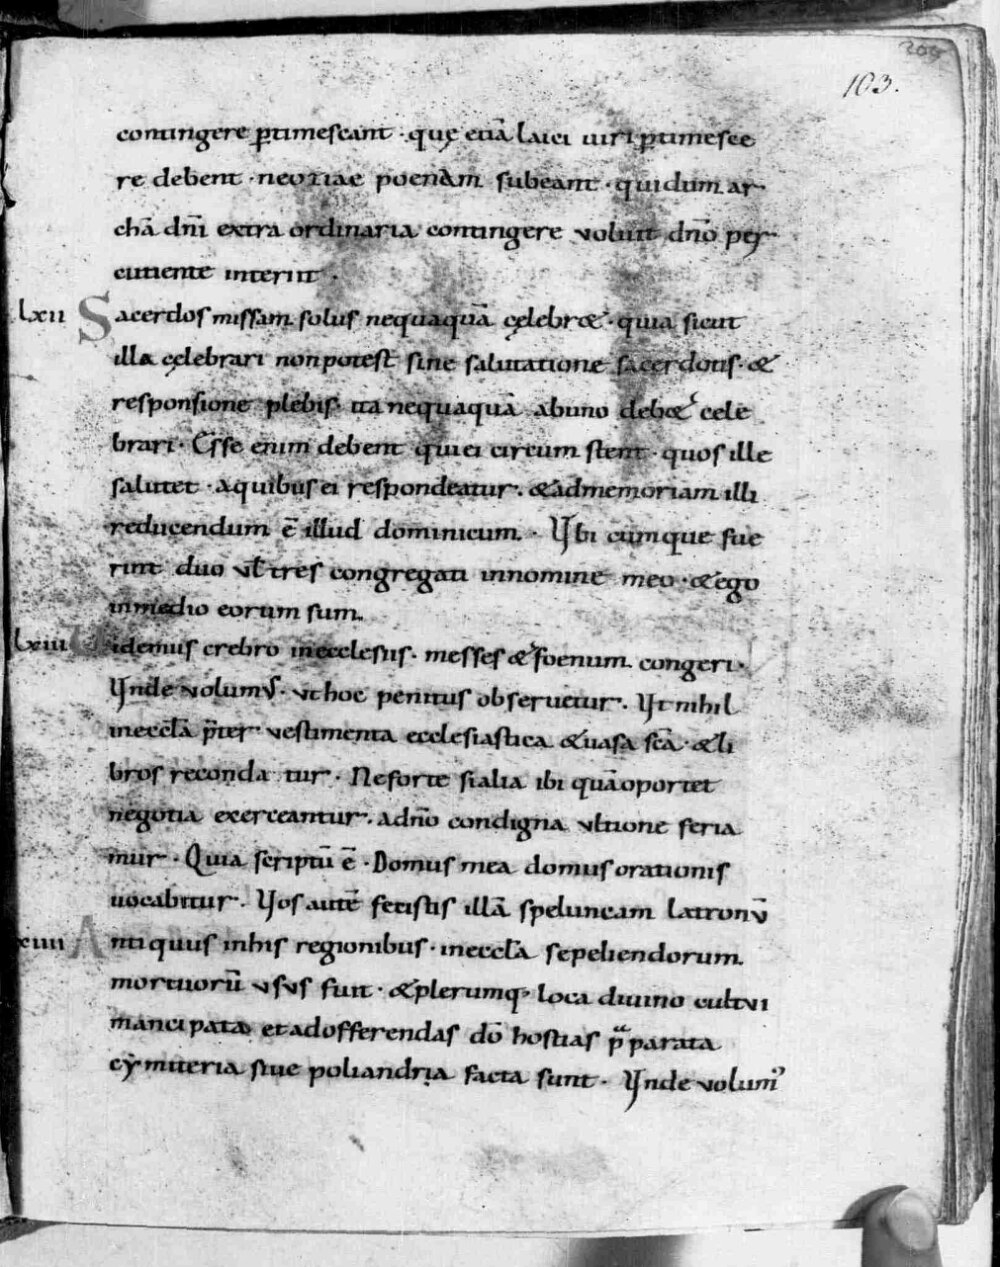 103.
contingere ptimescant · quę etiā laici uiri ptimesce
re debent · ne oziae poenam subeant · qui dum ar
chā dn̄i extra ordinaria contingere voluit dn̄o per
cutiente interiit .
lxii Sacerdos missam solus nequaquā cęlebr& · quia sicut
illa cęlebrari non potest sine salutatione sacerdotis · &
responsione plebis · ita nequaquā ab uno deb& cele
brari · Esse enim debent qui ei circum stent · quos ille
salutet · a quibus ei respondeatur . & ad memoriam illi
reducendum ē illud dominicum . Vbi cumque fue
rint duo vł tres congregati in nomine meo · & ego
in medio eorum sum .
lxiii Videmus crebro in ecclesiis · messes & foenum congeri ·
Vnde volumus · vt hoc penitus obseruetur . Vt nihil
in eccłā p̄ter vestimenta ecclesiastica & uasa scā · & li
bros recondatur . Ne forte si alia ibi quā oportet
negotia exerceantur . a dn̄o condigna vltione feria
mur . Quia scriptū ē · Domus mea domus orationis
uocabitur . Vos autē fecistis illā speluncam latronū
xiiii Antiquus in his regionibus · in eccłā sepeliendorum
mortuorū vsvs fuit · & plerumq; loca diuino cultvi
mancipata et ad offerendas dō hostias p̄parata
cẏmiteria siue poliandria facta sunt . Vnde volum'